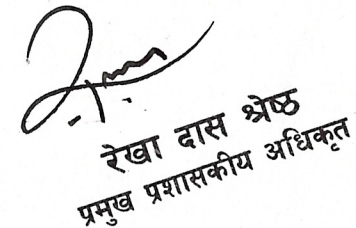 रेखा दास श्रेष्ठ
प्रमुख प्रशासकीय अधिकृत